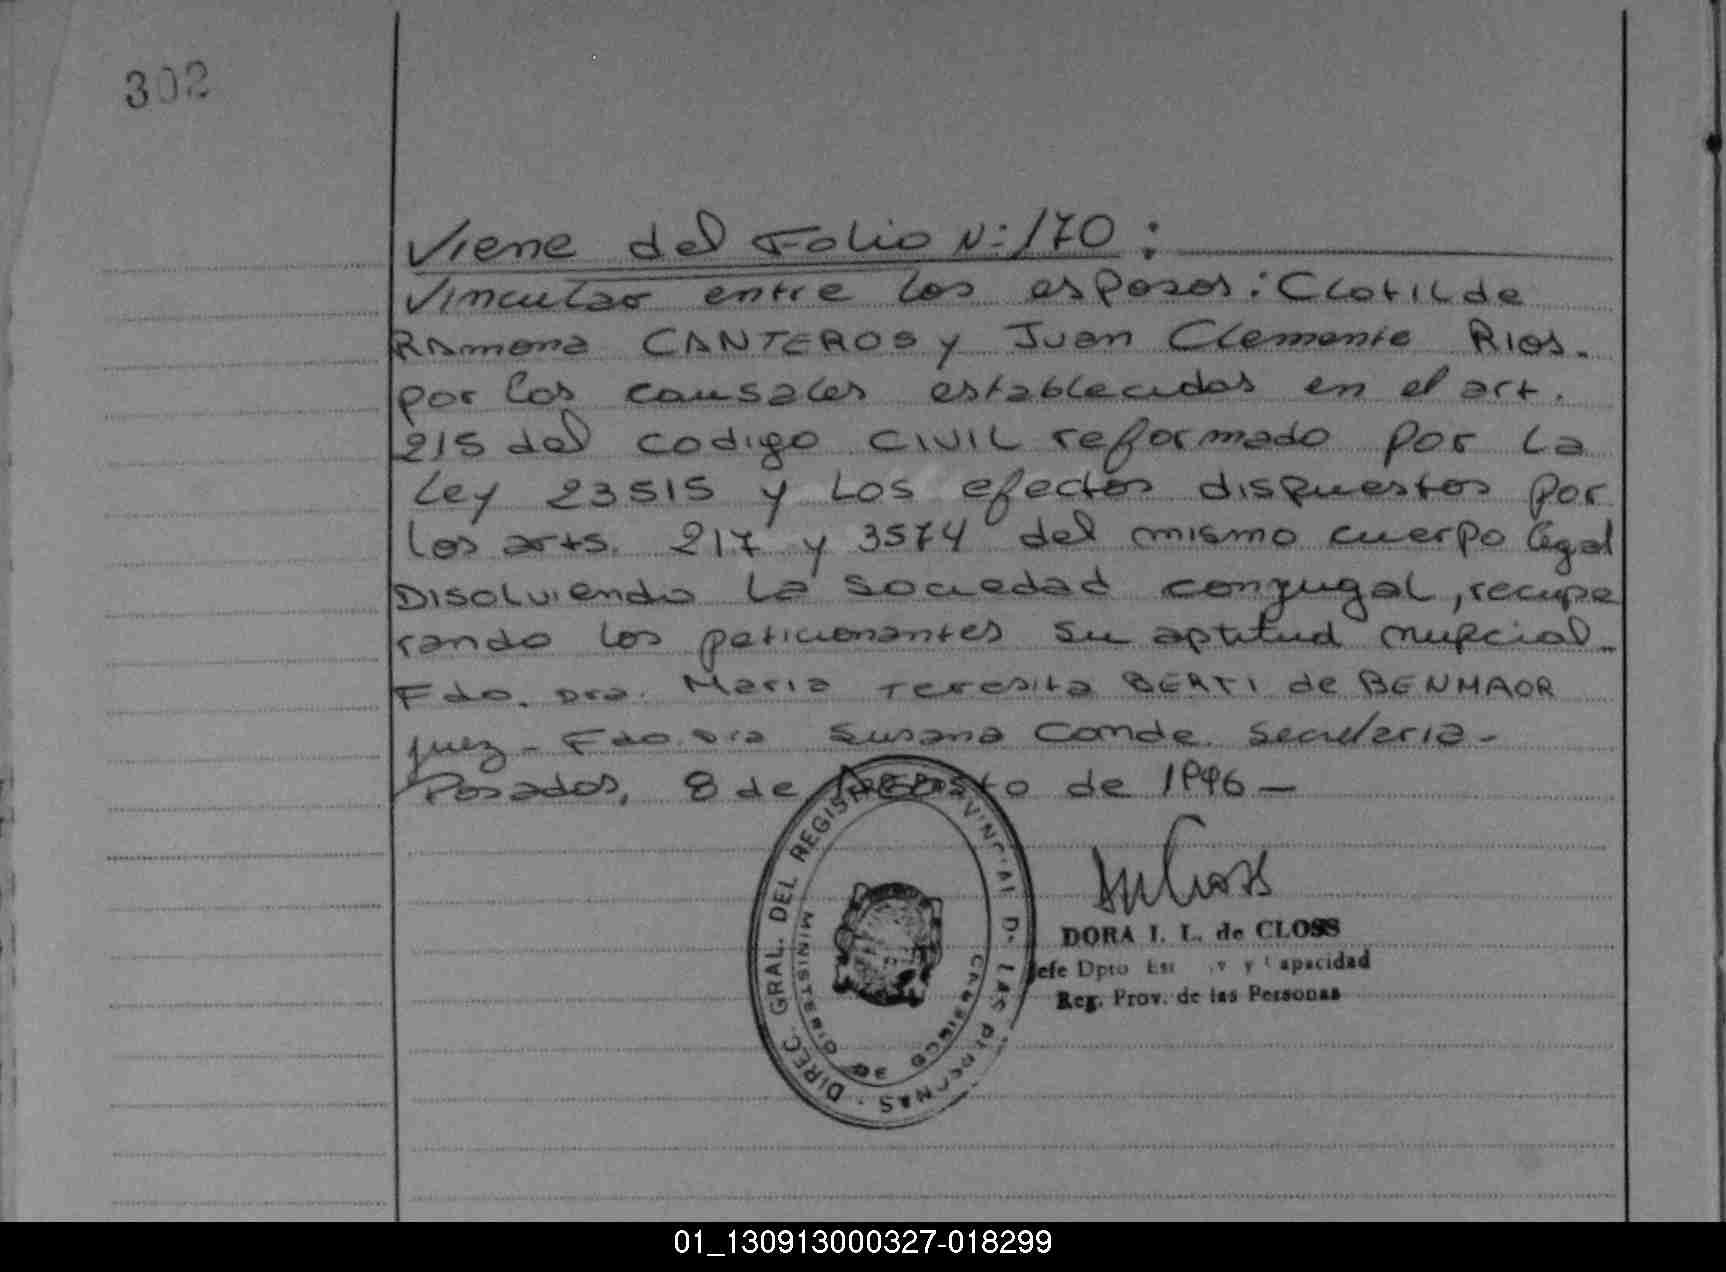 302
Viene del Folio N: 170 :
Vincular entre los esposos: Clotilde
Ramona CANTEROS y Juan Clemente Rios.
por los causales establecidos en el art.
215 del codigo CIVIL reformado por La
Ley 23515 y Los efectos dispuestos por
los arts. 217 y 3574 del mismo cuerpo legal
Disolviendo La sociedad conyugal, recupe
rando los peticionantes su aptitud nupcial.
Fdo. Dra. Maria Teresita BERTI de BENMAOR
juez - Fdo. Dra Susana Conde. Secretaria -
Posadas, 8 de Agosto de 1996 -
DIREC. GRAL. DEL REGISTRO PROVINCIAL DE LAS PERSONAS -
MINISTERIO DE GOBIERNO
DORA I. L. de CLOSS
Jefe Dpto y Capacidad
Reg. Prov. de las Personas
01_130913000327-018299